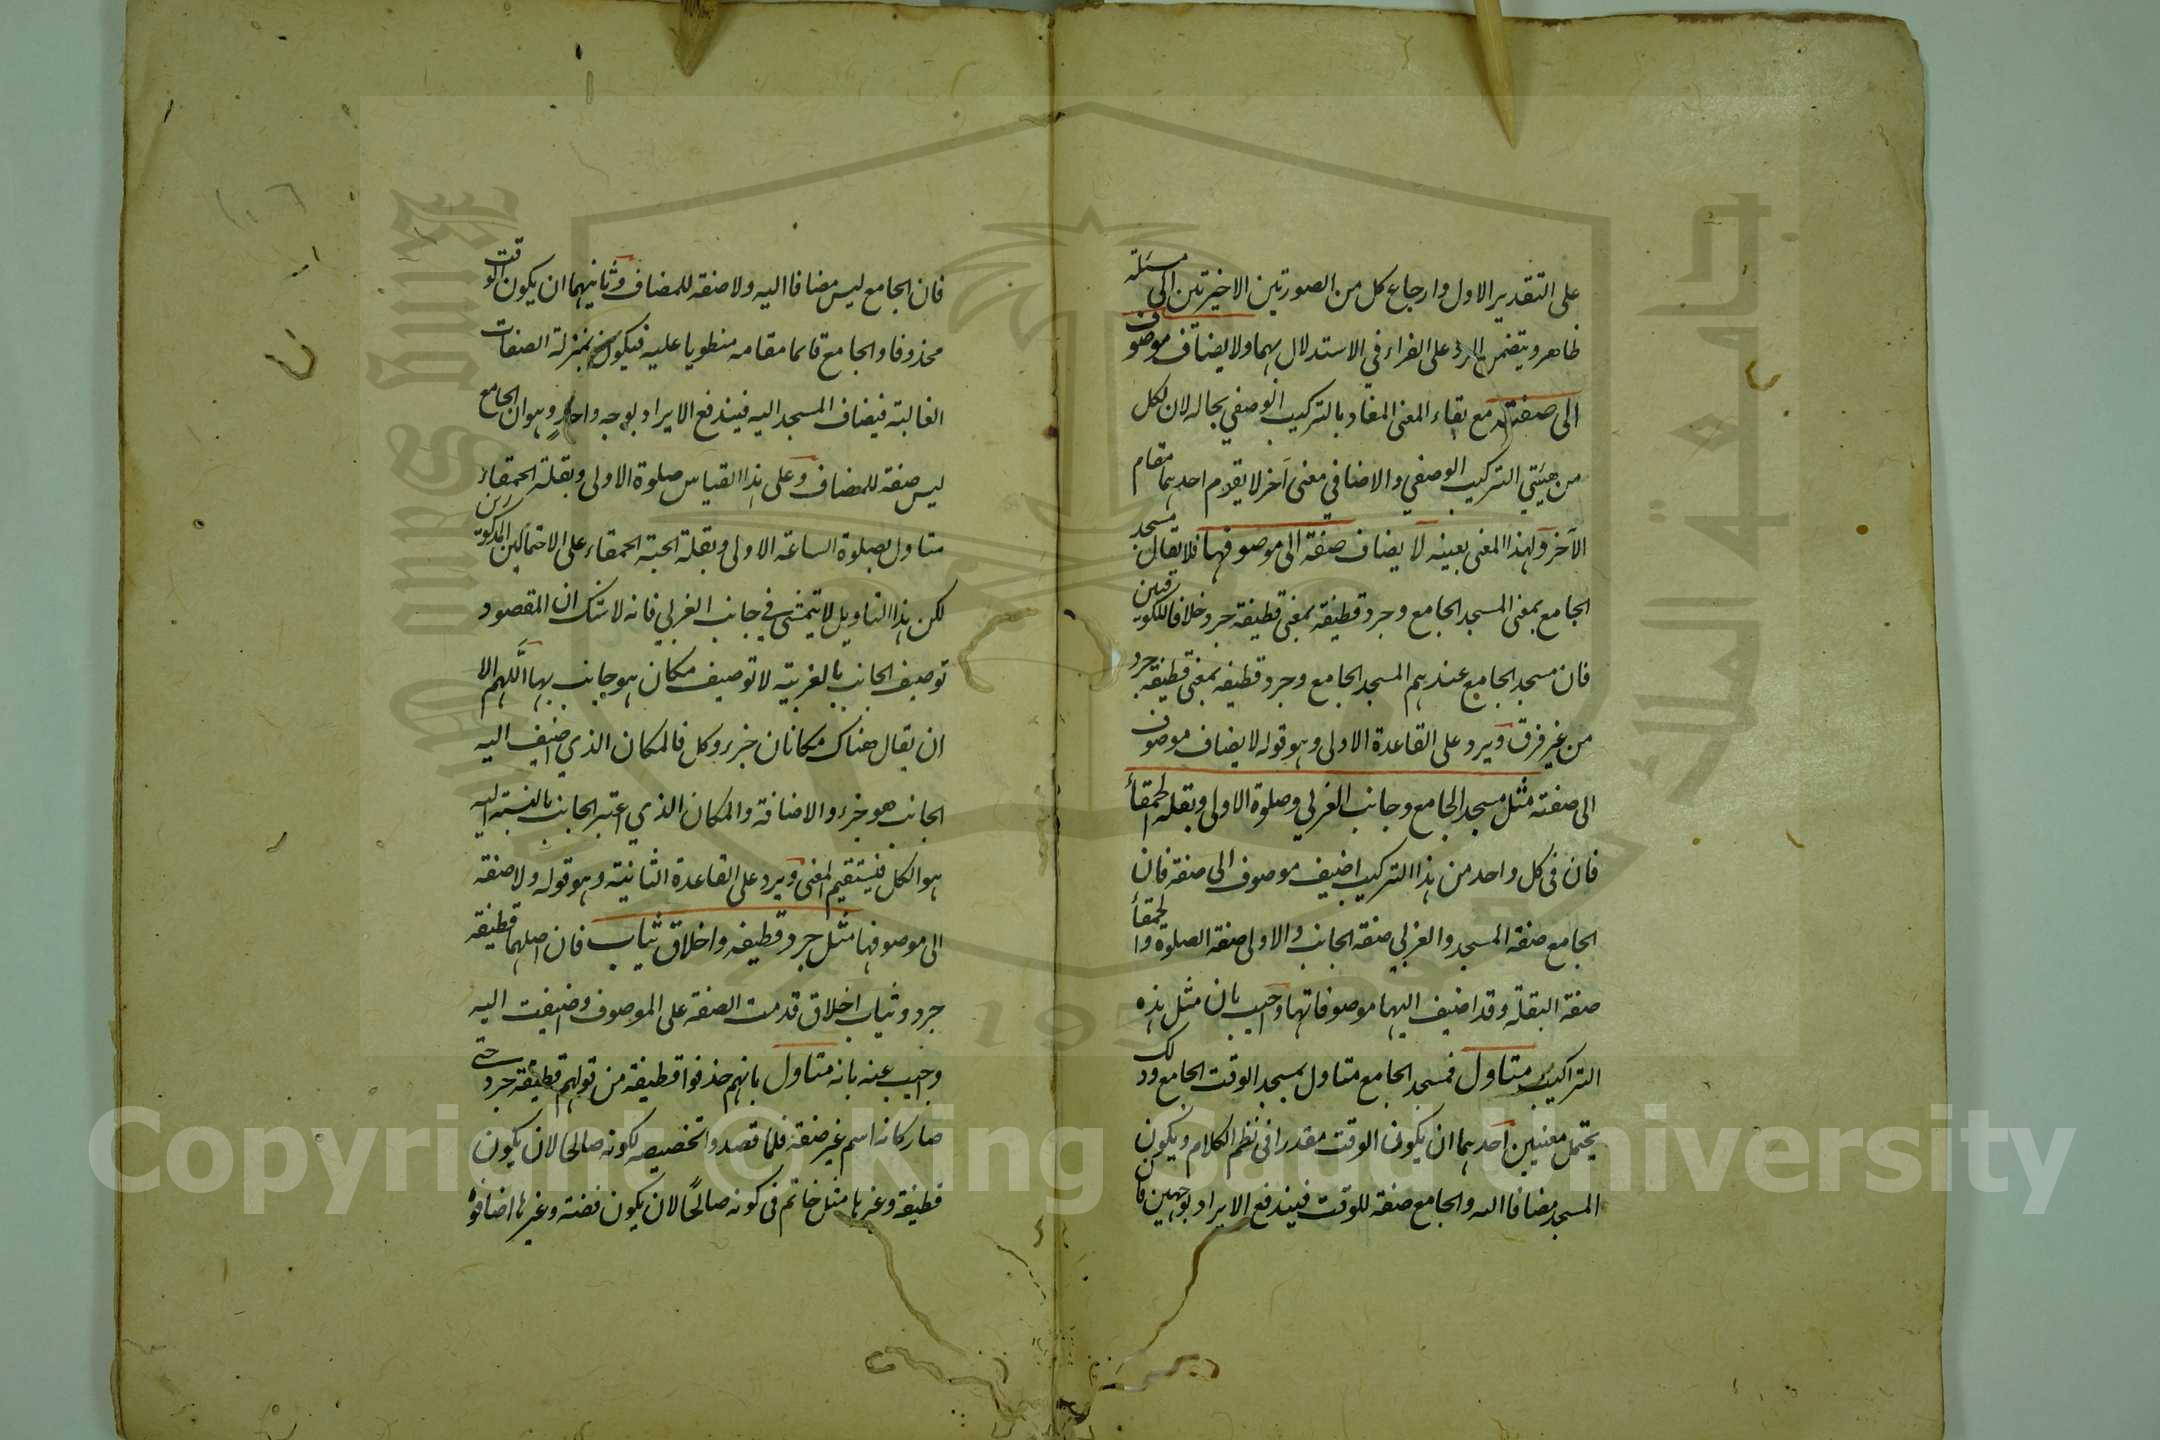 على التقدير الاول وارجاع كل من الصورتين الاخيرتين الى مسئلة
ظاهر ويتضمن الرد على الفراء في الاستدلال بهما ولا يضاف موصوف
الى صفته مع بقاء المعنى المفاد بالتركيب الوصفي بحاله لان لكل
من هيئتي التركيب الوصفي والاضافي معنى آخر لا يقوم احدهما مقام
الآخر ولهذا المعنى بعينه لا يضاف صفة الى موصوفها فلا يقال مسجد
الجامع بمعنى المسجد الجامع وجرد قطيفة بمعنى قطيفة جرد خلافا للكوفيين
فان مسجد الجامع عندهم المسجد الجامع وجرد قطيفة بمعنى قطيفة جرد
من غير فرق ويرد على القاعدة الاولى وهو قوله لا يضاف موصوف
الى صفته مثل مسجد الجامع وجانب الغربي وصلوة الاولى وبقلة الحمقأ
فان في كل واحد من هذا التركيب اضيف موصوف الى صفة فان
الجامع صفة المسجد والغربي صفة الجانب والاولى صفة الصلوة والحمقأ
صفة البقلة وقد اضيف اليها موصوفاتها واجيب بان مثل هذه
التراكيب متاول فمسجد الجامع متاول بمسجد الوقت الجامع وذلك
يحتمل معنيين احدهما ان يكون الوقت مقدرا في نظم الكلام ويكون
المسجد مضافا اليه والجامع صفة للوقت فيندفع الايراد بوجهين
فان الجامع ليس مضافا اليه ولا صفة للمضاف وثانيهما ان يكون الوقت
محذوفا والجامع قائما مقامه منطويا عليه فيكون بمنزلة الصفات
الغالبة فيضاف المسجد اليه فيندفع الايراد بوجه واحد وهو ان الجامع
ليس صفة للمضاف وعلى هذا القياس صلوة الاولى وبقلة الحمقاء
متاول بصلوة الساعة الاولى وبقلة الحبة الحمقاء على الاحتمالين المذكورين
لكن هذا التاويل لا يتمشى في جانب الغربي فانه لا شك ان المقصود
توصيف الجانب بالغربية لا توصيف مكان هو جانب بها اللهم الا
ان يقال هناك مكانان جزء وكل فالمكان الذي اضيف اليه
الجانب هو جزء والاضافة والمكان الذي اعتبر الجانب بالنسبة اليه
هو الكل فيستقيم المعنى ويرد على القاعدة الثانية وهو قوله ولا صفة
الى موصوفها مثل جرد قطيفة واخلاق ثياب فان اصلهما قطيفة
جرد وثياب اخلاق قدمت الصفة على الموصوف واضيفت اليه
واجيب عنه بانه متاول بانهم حذفوا قطيفة من قولهم قطيفة جرد حتى
صار كانه اسم غير صفة فلما قصدوا تخصيصه لكونه صالحا لان يكون
قطيفة وغيرها مثل خاتم في كونه صالحًا لان يكون فضة وغيرها اضافوه
Copyright © King Saud University
جامعة الملك سعود
King Saud University